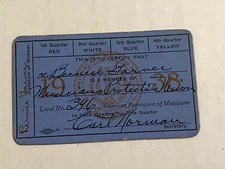 1st Quarter 2nd Quarter 3rd Quarter 4th Quarter
RED WHITE BLUE YELLOW
THIS IS TO CERTIFY THAT
Bernie
19 IS A MEMBER OF 38
Musicians Protective Union
Local No. 246 American Federation of Musicians
in Good Standing This Quarter
Carl Norman
Secretary